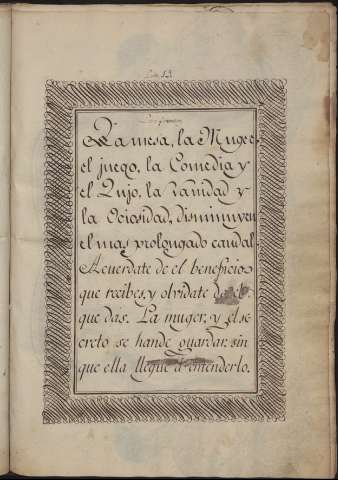 La mesa, la Muger
el juego, la Comedia y
el Lujo, la Vanidad y
la Ociosidad, disminuyen
el mas prolongado caudal.
Acuerdate de el beneficio
que recibes, y olvidate de el
que das. La muger, y el se
creto se hande guardar, sin
que ella llegue á entenderlo.